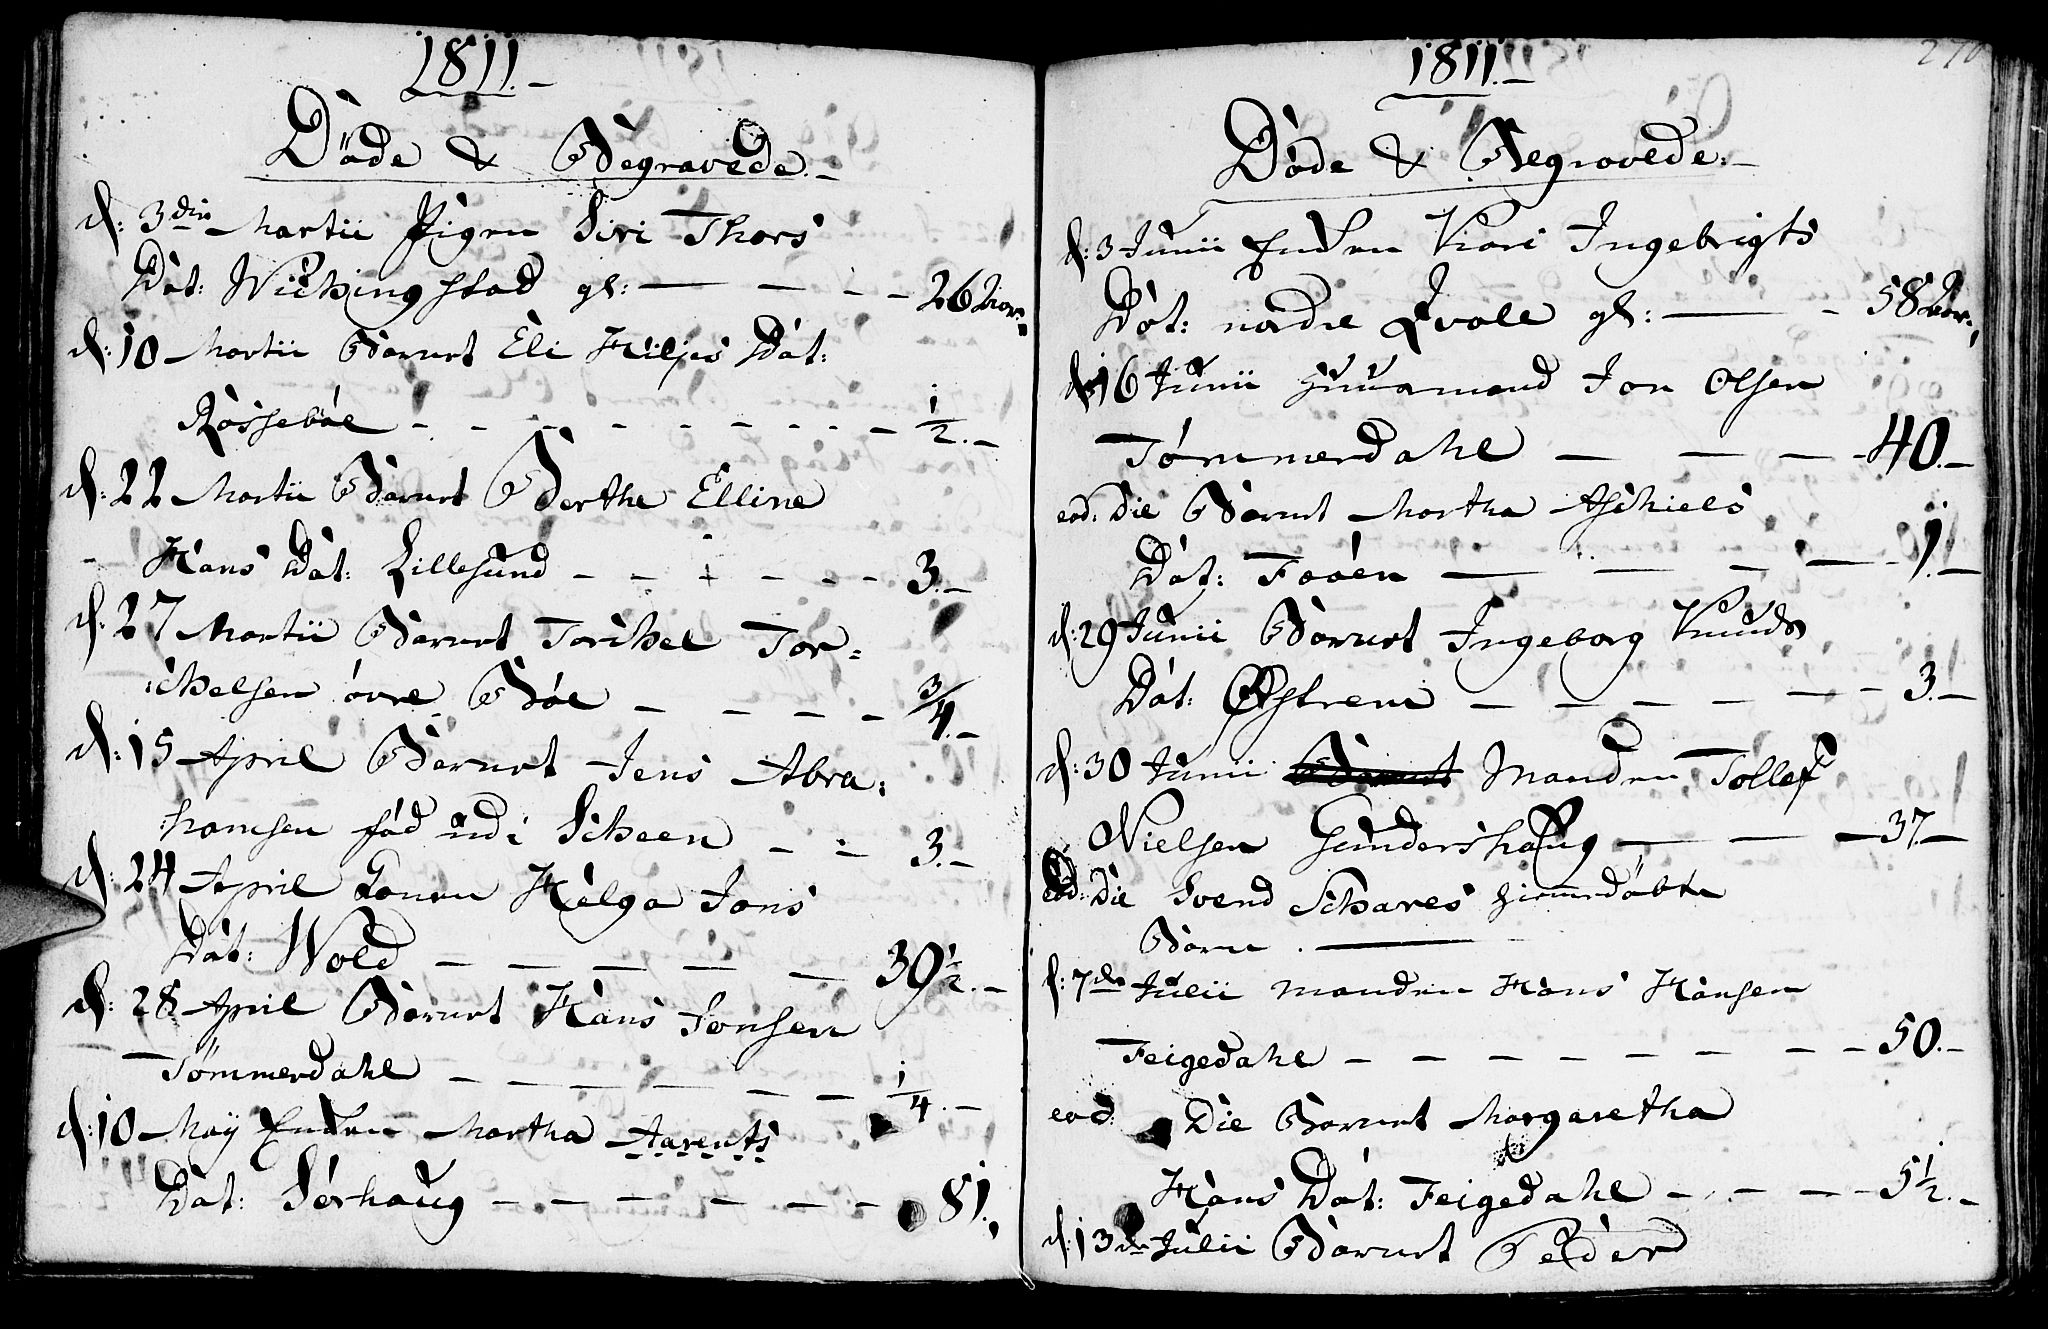 1811.-
Døde & Begravede.-
d: 3die Martii Pigen Siri Thors
Dat: Wichingstad gl: — - - - 26 Aar:
d: 10 Martii Barnet Eli Kiljes Dat:
Røssebøe - - - - - - - - 1/2.-
d: 22 Martii Barnet Berthe Elline
Hans Dat: Lillesund - - - - - - 3.-
d: 27 Martii Barnet Torchel Tor=
:chelsen øvre Bøe - - - - 3/4.-
d: 15 April Barnet Jens Abra:
:hamsen fød udi Scheen - - 3.-
d: 24 April Konen Helga Jons
Dat: Wold - - - - - - 39 1/2.-
d: 28 April Barnet Hans Jonsen
Tømmerdahl - - - - - - 1/4.-
d: 10 Maij Enken Martha Aarents
Dat: Sørhaug - - - - - - 81.,
1811.-
270
Døde & Begravede:-
d: 3 Junii Enken Kari Ingebrigts
Dat: nordre Qvale gl: — - 58 Aar:,
d: 16 Junii Huusmand Jon Olsen
Tømmerdahl - - - - 40.-
eod: Die Barnet Martha Aschiels
Dat: Foøen — - - - - 1.-
d: 29 Junii Barnet Ingeborg Knuds
Dat: Østrem - - - - - - - 3.-
d: 30 Junii Barnet Manden Tollef
Nielsen Gundershaug — - - 37.-
eod: Die Svend Schares hiemmedøbte
Barn. —
d: 7de Julii Manden Hans Hansen
Feigedahl - - - - - - - - - 50.-
eod Die Barnet Margaretha
Hans Dat: Feigedahl - - - - 5 1/2.-
d: 13de Julii Barnet Peder